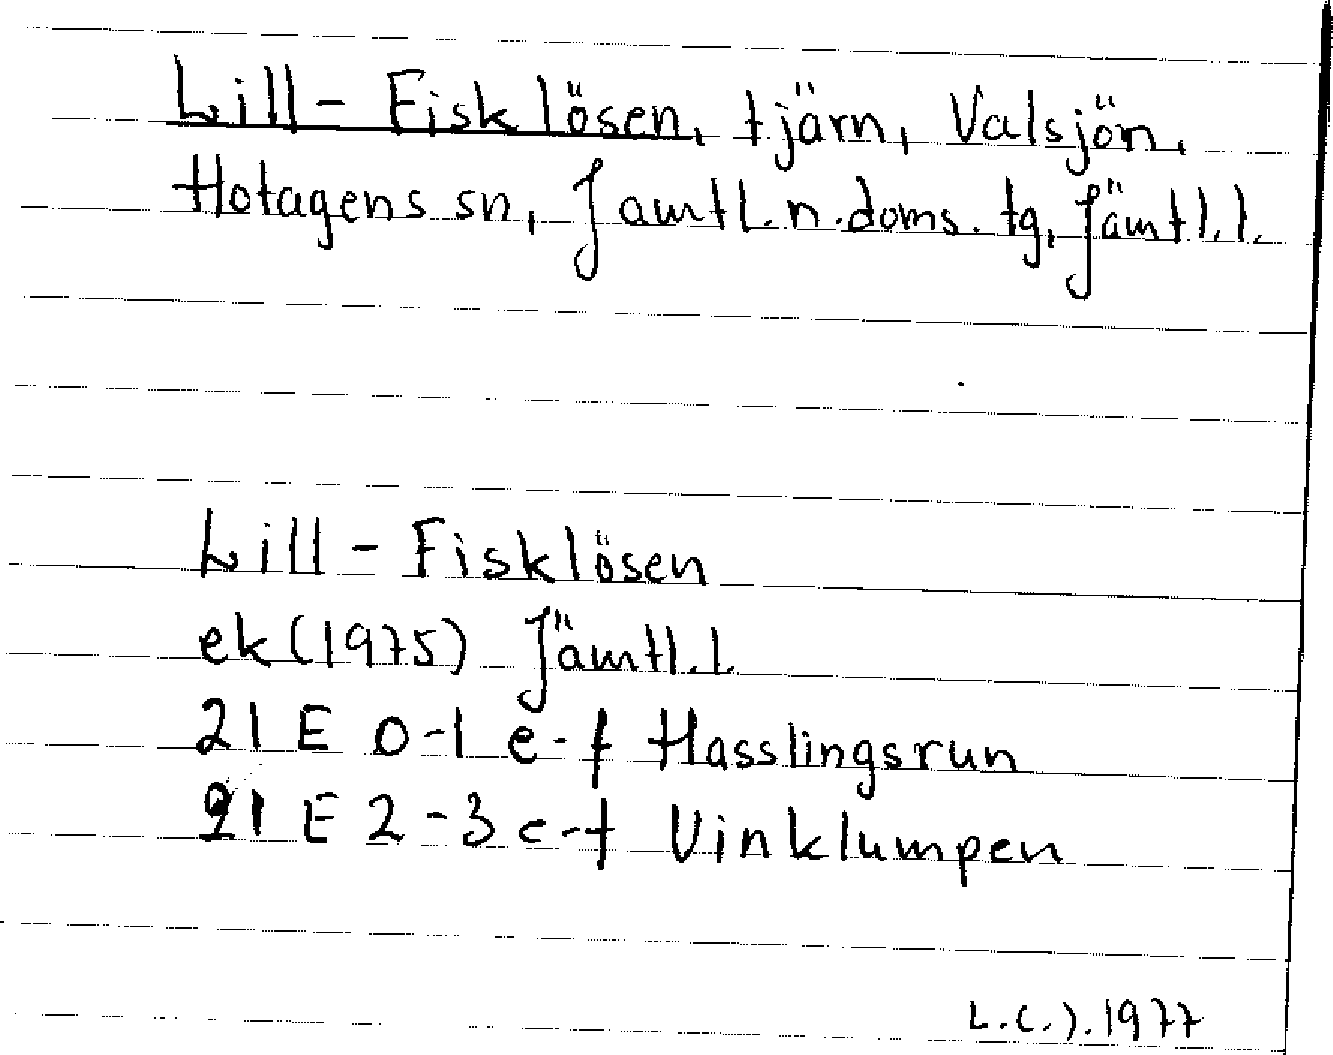 Lill-Fisklösen, tjärn, Valsjön,
Hotagens sn, Jämtl. n. doms. tg, Jämtl. l.
Lill-Fisklösen
ek (1975) Jämtl. l
21 E 0-1 e-f Hasslingsrun
21 E 2-3 e-f Vinklumpen
1977